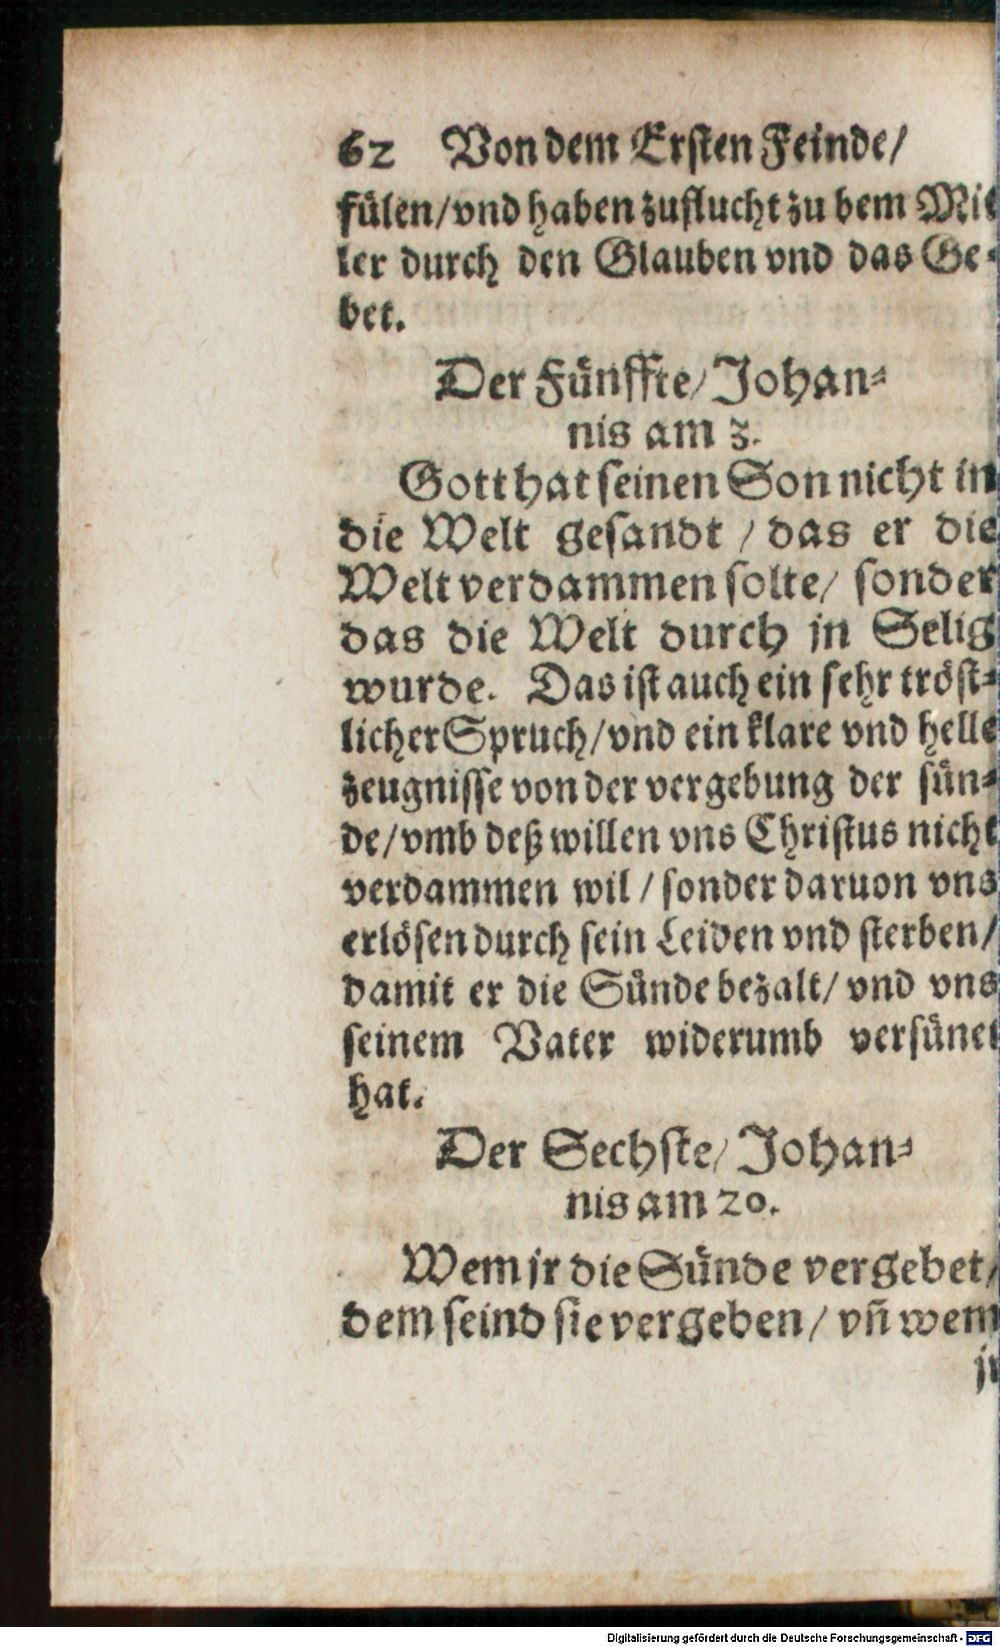 62 Von dem Ersten Feinde/
fülen/vnd haben zuflucht zu dem Mit
ler durch den Glauben vnd das Ge-
bet.
Der Fünffte/Johan-
nis am 3.
Gott hat seinen Son nicht in
die Welt gesandt / das er die
Welt verdammen solte/ sonder
das die Welt durch jn Selig
wurde. Das ist auch ein sehr tröst-
licher Spruch/vnd ein klare vnd helle
zeugnisse von der vergebung der sün-
de/vmb deß willen vns Christus nicht
verdammen wil / sonder daruon vns
erlösen durch sein Leiden vnd sterben/
damit er die Sünde bezalt/ vnd vns
seinem Vater widerumb versünet
hat.
Der Sechste/Johan-
nis am 20.
Wem jr die Sünde vergebet/
dem seind sie vergeben/ vñ wem
jr
Digitalisierung gefördert durch die Deutsche Forschungsgemeinschaft - DFG